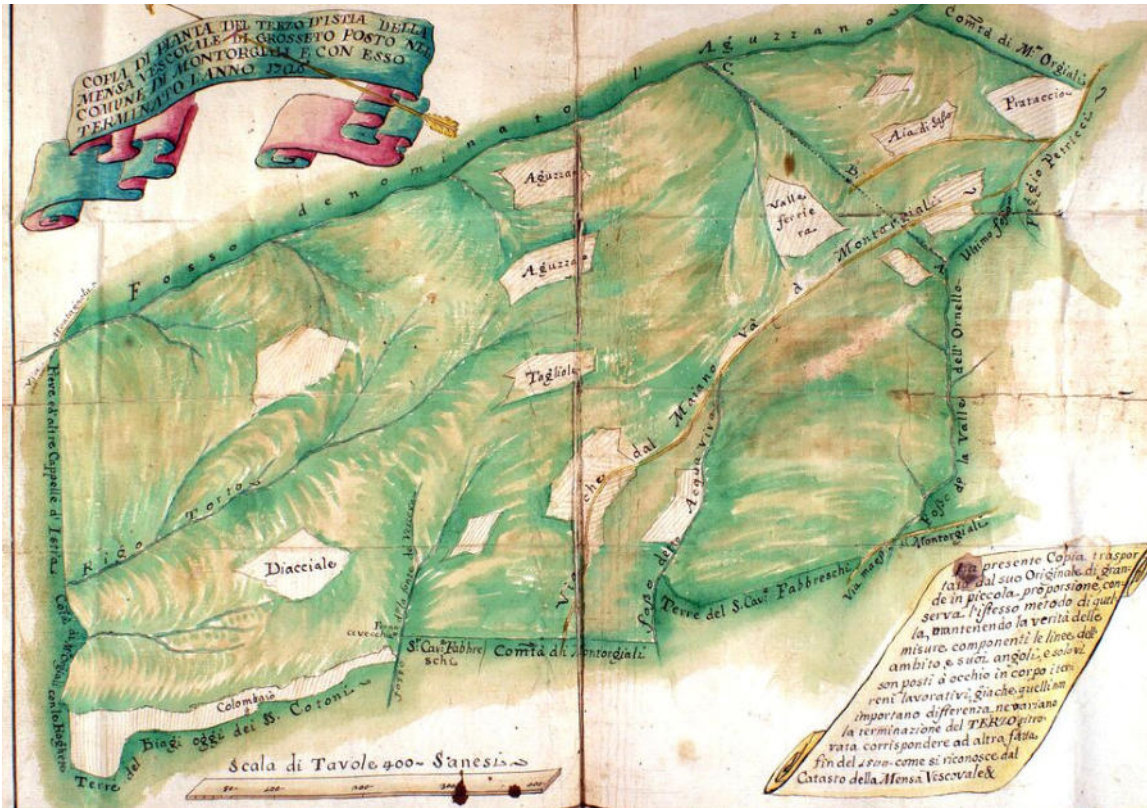 COPIA DI PIANTA DEL TERZO D'ISTIA DELLA
MENSA VESCOVALE DI GROSSETO POSTO NEL
COMUNE DI MONTORGIALI E CON ESSO
TERMINATO L'ANNO
Fosso denominato l'Aguzzano
Com.tà di M.te Orgiali
Prataccio
Aia di Saso
Poggio Petricci
Ultimo fosso
C
B
A
Valle
ferrie
ra
Aguzza
Aguzza
Tagliole
Via che dal Maiano Va à Montorgiali
Acqua Viva
Fosso dello
Fosso de la Valle dell'Ornello
Via Montorgiali
Pieve ed'altre Cappelle d'Istia
Rigo Torto
Diacciale
Colombaio
Terre del Biagi oggi dei SS. Cotoni
S.r Cav.e Fabbre
schi
Com.tà di Montorgiali
Terre del S. Cav.e Fabbreschi
Via maes
di Montorgiali
Scala di Tavole 400 Sanesi
La presente Copia traspor
tata dal suo Originale di gran
de in piccola proporsione, con
serva l'istesso metodo di quel
la, mantenendo la verità delle
misure componenti le linee dell'
ambito e suoi angoli, e solo vi
son posti à occhio in corpo i ter
reni lavorativi, giache quelli non
importano differenza, ne variano
la terminazione del TERZO ritro
vata corrispondere ad altra fatta
fin del come si riconosce dal
Catasto della Mensa Vescovale &